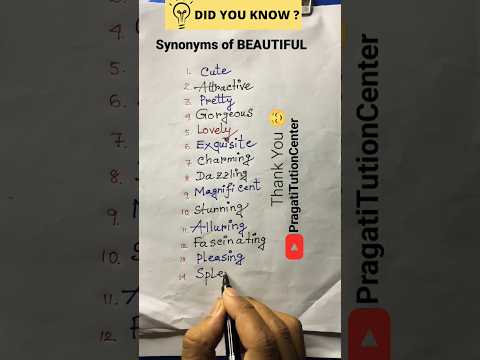 DID YOU KNOW ?
Synonyms of BEAUTIFUL
1. Cute
2. Attractive
3. Pretty
4. Gorgeous
5. Lovely
6. Exquisite
7. Charming
8. Dazzling
9. Magnificent
10. Stunning
11. Alluring
12. Fascinating
13. Pleasing
14. Sple
Thank You
PragatiTutionCenter